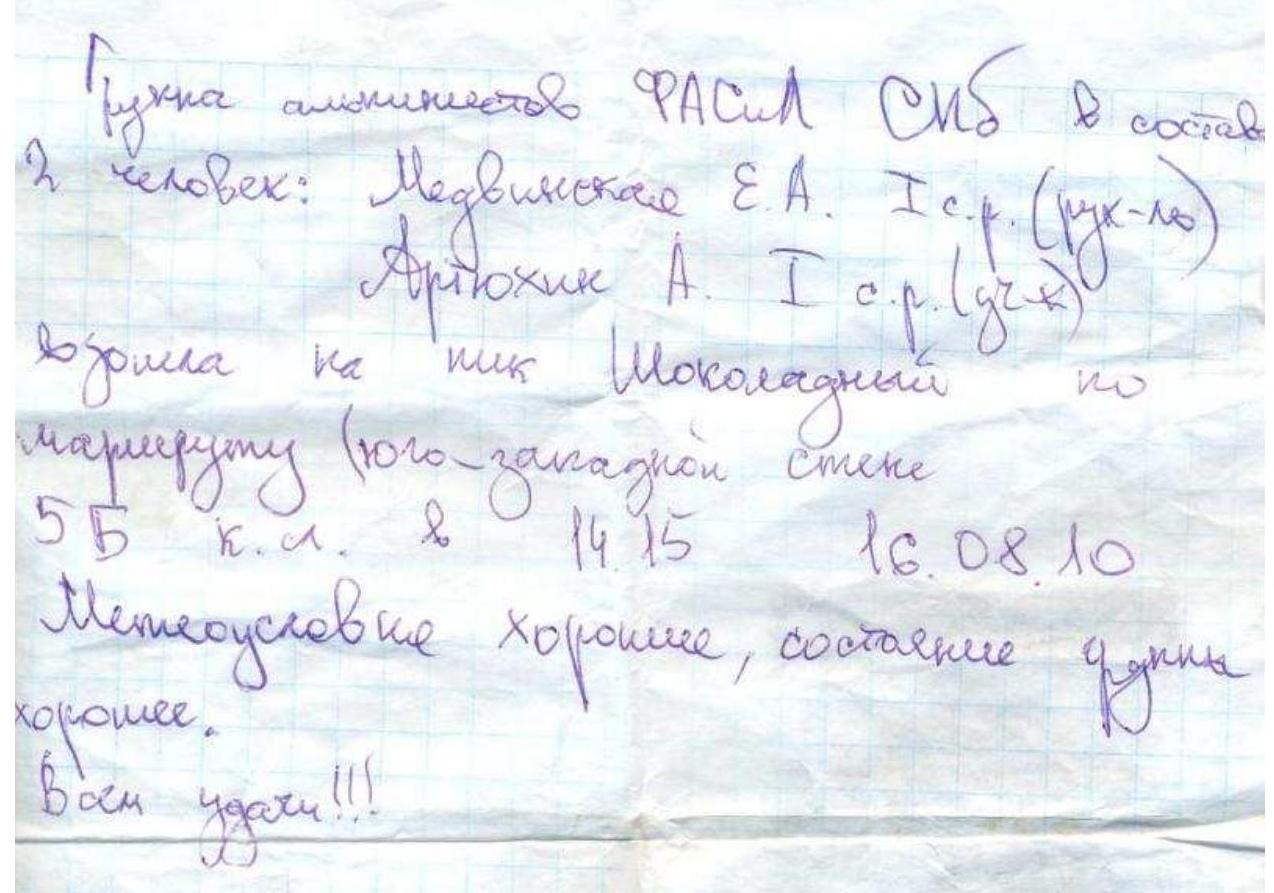 Группа альпинистов ФАСиЛ СПб в состав
2 человек: Медвинская Е.А. I с.р. (рук-ль)
Артюхин А. I с.р. (уч-к)
взошла на пик Шоколадный по
маршруту (юго-западной стене
5Б к.л. в 14.15 16.08.10
Метеоусловия хорошие, состояние группы
хорошее.
Всем удачи!!!